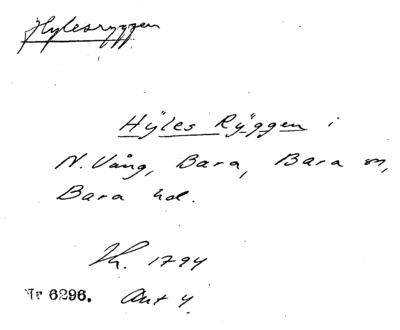 Hylesryggen
Hÿles Rÿggen i
N. Vång, Bara, Bara sn,
Bara hd.
1794
Nr 6296. Akt 4.